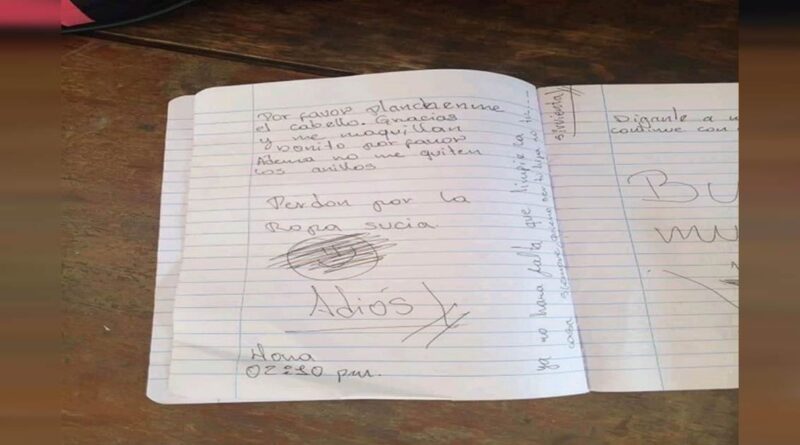 Por favor planchenme
el cabello. Gracias
y me maquillan
bonito por favor
Ademas no me quiten
los anillos
Perdon por la
Ropa sucia
Adiós
Hora
02:30 pm.
ya no hara falta que limpie la
casa siempre
sirvienta
Digante a
continue con
Bu
mu